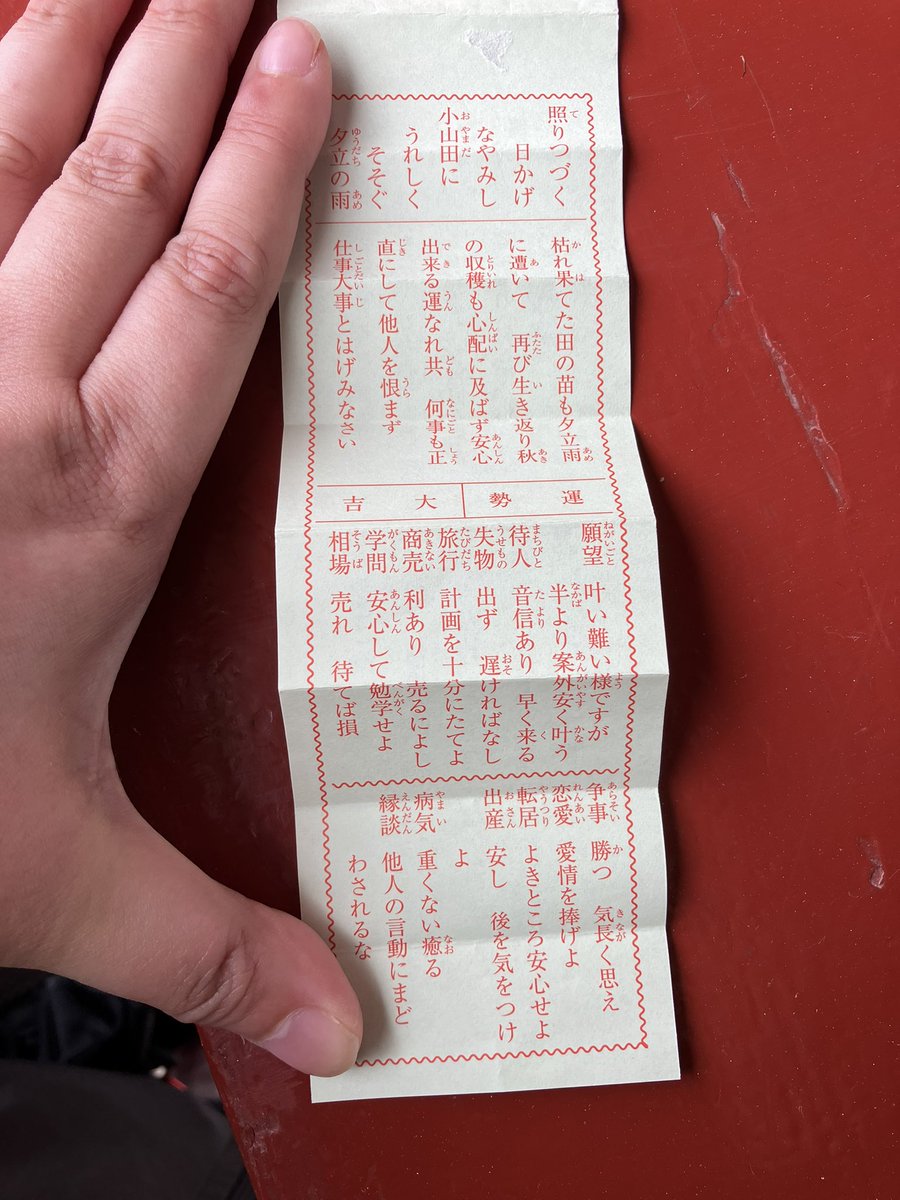 照りつづく
日かげ
なやみし
小山田に
うれしく
そそぐ
夕立の雨
枯れ果てた田の苗も夕立雨
に遭いて 再び生き返り秋
の収穫も心配に及ばず安心
出来る運なれ共 何事も正
直にして他人を恨まず
仕事大事とはげみなさい
運勢 大吉
願望 叶い難い様ですが
半より案外安く叶う
待人 音信あり 早く来る
失物 出ず 遅ければなし
旅行 計画を十分にたてよ
商売 利あり 売るによし
学問 安心して勉学せよ
相場 売れ 待てば損
争事 勝つ 気長く思え
恋愛 愛情を捧げよ
転居 よきところ安心せよ
出産 安し 後を気をつけ
よ
病気 重くない癒る
縁談 他人の言動にまど
わされるな